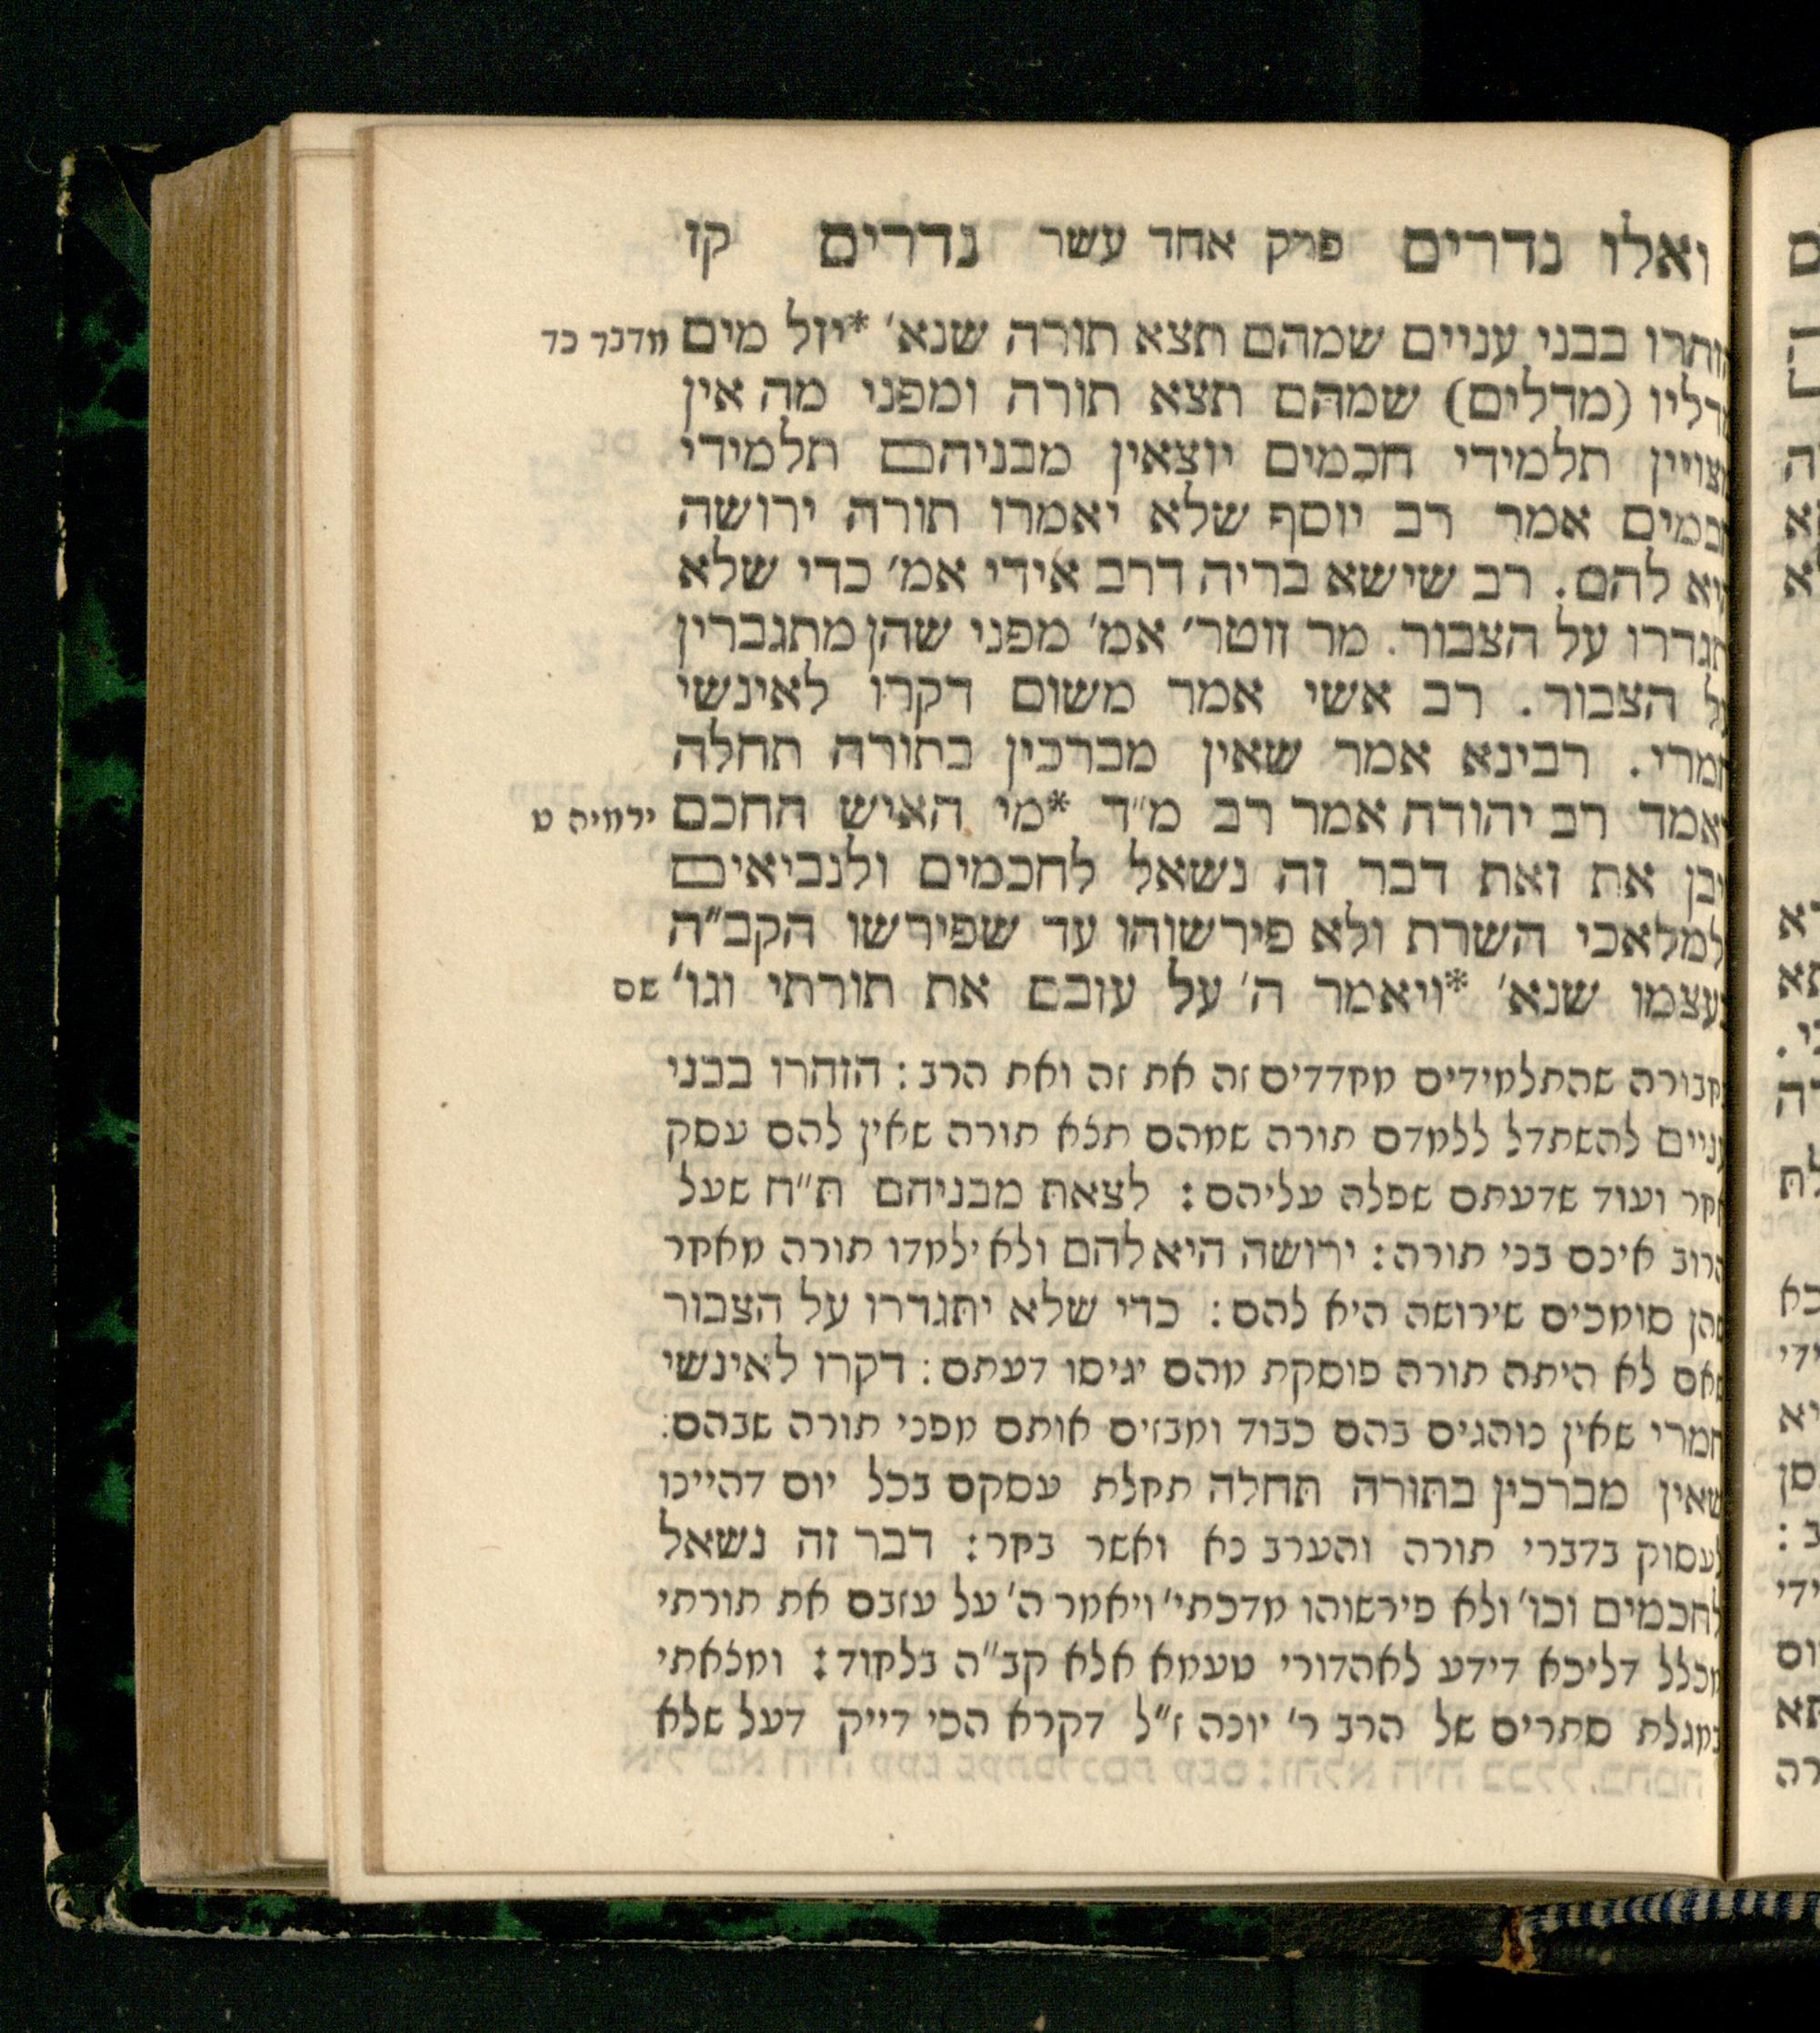 ואלו נדרים פרק אחד עשר נדרים קז
בבני עניים שמהם תצא תורה שנא' *יזל מים מדבר כד
(מדלים) שמהם תצא תורה ומפני מה אין
תלמידי חכמים יוצאין מבניהם תלמידי
אמר רב יוסף שלא יאמרו תורה ירושה
להם. רב שישא בריה דרב אידי אמ' כדי שלא
על הצבור. מר זוטר' אמ' מפני שהן מתגברין
הצבור. רב אשי אמר משום דקרו לאינשי
רבינא אמר שאין מברכין בתורה תחלה
רב יהודה אמר רב מ"ד *מי האיש החכם ירמיה ט
את זאת דבר זה נשאל לחכמים ולנביאים
למלאכי השרת ולא פירשוהו עד שפירשו הקב"ה
שנא' *ויאמר ה' על עזבם את תורתי וגו' שם
שהתלמידים מחדדים זה את זה ואת הרב: הזהרו בבני
להשתדל ללמדם תורה שמהם תצא תורה שאין להם עסק
ועוד שדעתם שפלה עליהם: לצאת מבניהם ת"ח שעל
אינם בני תורה: ירושה היא להם ולא ילמדו תורה מאחר
סומכים שירושה היא להם: כדי שלא יתגדרו על הצבור
לא היתה תורה פוסקת מהם יגיסו דעתם: דקרו לאינשי
חמרי שאין נוהגים בהם כבוד ומבזים אותם מפני תורה שבהם:
שאין מברכין בתורה תחלה תחלת עסקם בכל יום דהיינו
לעסוק בדברי תורה והערב נא ואשר בחר: דבר זה נשאל
לחכמים וכו' ולא פירשוהו מדכתי' ויאמר ה' על עזבם את תורתי
מכלל דליכא דידע לאהדורי טעמא אלא קב"ה בלחוד: ומצאתי
במגלת סתרים של הרב ר' יונה ז"ל דקרא הכי דייק דעל שלא